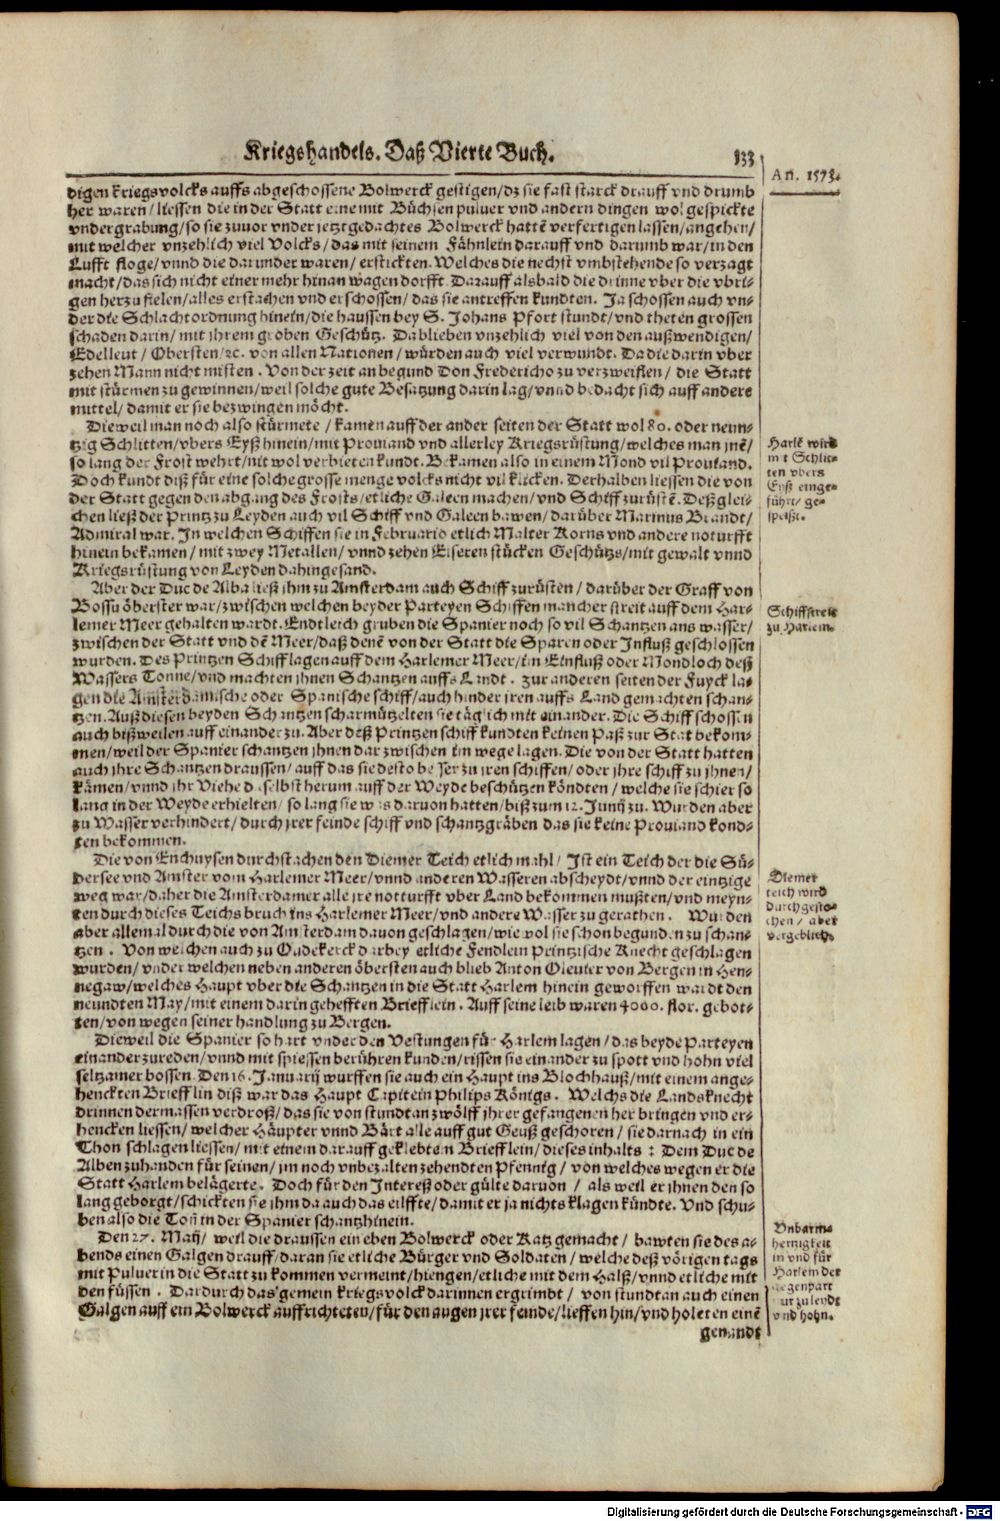 Kriegshandels. Daß Vierte Buch. 133
An. 1573.
digen kriegsvolcks auffs abgeschossene Bolwerck gestigen/dz sie fast starck drauff vnd drumb
her waren/liessen die in der Statt eine mit Büchsen puluer vnd andern dingen wol gespickte
vndergrabung/so sie zuuor vnder jetztgedachtes Bolwerck hattē verfertigen lassen/angehen/
mit welcher vnzehlich viel Volcks/das mit seinem Fähnlein darauff vnd darumb war/in den
Lufft floge/vnnd die darunder waren/erstickten. Welches die nechst vmbstehende so verzagt
macht/das sich nicht einer mehr hinan wagen dorfft. Darauff alsbald die drinne vber die vbri-
gen herzu fielen/alles erstachen vnd erschossen/das sie antreffen kundten. Ja schossen auch vn-
der die Schlachtordnung hinein/die haussen bey S. Johans Pfort stundt/vnd theten grossen
schaden darin/mit jhrem groben Geschütz. Da blieben vnzehlich viel von den außwendigen/
Edelleut/Obersten/ꝛc. von allen Nationen/würden auch viel verwundt. Da die darin vber
zehen Mann nicht misten. Von der zeit an begund Don Fredericho zu verzweiflen/die Statt
mit stürmen zu gewinnen/weil solche gute Besatzung darin lag/vnnd bedacht sich auff andere
mittel/damit er sie bezwingen möcht.
Dieweil man noch also stürmete/kamen auff der ander seiten der Statt wol 80. oder neun-
tzig Schlitten/vbers Eyß hinein/mit Prouiand vnd allerley Kriegsrüstung/welches man jnē/
so lang der Frost wehrt/nit wol verbieten kundt. Bekamen also in einem Mond vil Prouiand.
Doch kundt diß für eine solche grosse menge volcks nicht vil klicken. Derhalben liessen die von
der Statt gegen den abgang des Frosts/etliche Galeen machen/vnd Schiff zurüstē. Deßglei-
chen ließ der Printz zu Leyden auch vil Schiff vnd Galeen bawen/darüber Marinus Brandt/
Admiral war. In welchen Schiffen sie in Februario etlich Malter Korns vnd andere noturfft
hinein bekamen/mit zwey Metallen/vnnd zehen Eiseren stücken Geschütz/mit gewalt vnnd
Kriegsrüstung von Leyden dahin gesand.
Aber der Duc de Alba ließ jhm zu Amsterdam auch Schiff zurüsten/darüber der Graff von
Bossu öberster war/zwischen welchen beyder Parteyen Schiffen mancher streit auff dem Har-
lemer Meer gehalten wardt. Endtleich gruben die Spanier noch so vil Schantzen ans wasser/
zwischen der Statt vnd dē Meer/daß denē von der Statt die Sparen oder Influß geschlossen
wurden. Des Printzen Schiff lagen auff dem Harlemer Meer/im Einfluß oder Mondloch deß
Wassers Tonne/vnd machten jhnen Schantzen auffs Landt. zur anderen seiten der Fuyck la-
gen die Amsterdamische oder Spanische schiff/auch hinder jren auffs Land gemachten schan-
tzen. Auß diesen beyden Schantzen scharmützelten sie täglich mit einander. Die Schiff schossen
auch bißweilen auff einander zu. Aber deß Printzen schiff kundten keinen Paß zur Stat bekom-
men/weil der Spanier schantzen jhnen dar zwischen im wege lagen. Die von der Statt hatten
auch jhre Schantzen draussen/auff das sie desto besser zu jren schiffen/oder jhre schiff zu jhnen/
kämen/vnnd jhr Viehe daselbst herum auff der Weyde beschützen köndten/welche sie schier so
lang in der Weyde erhielten/so lang sie was daruon hatten/biß zum 12. Junij zu. Wurden aber
zu Wasser verhindert/durch jrer feinde schiff vnd schantzgräben das sie keine Prouiand kond-
ten bekommen.
Die von Enchuysen durchstachen den Diemer Teich etlich mahl/Ist ein Teich der die Sü-
dersee vnd Amster vom Harlemer Meer/vnnd anderen Wasseren abscheydt/vnnd der eintzige
weg war/daher die Amsterdamer alle jre notturfft vber Land bekommen mußten/vnd meyn-
ten durch dieses Teichs bruch ins Harlemer Meer/vnd andere Wasser zu gerathen. Wurden
aber allemal durch die von Amsterdam dauon geschlagen/wie wol sie schon begunden zu schan-
tzen. Von welchen auch zu Oudekerck darbey etliche Fendlein Printzische Knecht geschlagen
wurden/vnder welchen neben anderen öbersten auch blieb Anton Oleuier von Bergen in Hen-
negaw/welches Haupt vber die Schantzen in die Statt Harlem hinein geworffen wardt den
neundten May/mit einem darin gehefften Briefflein. Auff seine leib waren 4000. flor. gebot-
ten/von wegen seiner handlung zu Bergen.
Dieweil die Spanier so hart vnder den Vestungen für Harlem lagen/das beyde Parteyen
einander zureden/vnnd mit spiessen berühren kunden/rissen sie einander zu spott vnd hohn viel
seltzamer bossen. Den 16. Januarij wurffen sie auch ein Haupt ins Blochhauß/mit einem ange-
henckten Briefflin diß war das Haupt Capitein Philips Königs. Welchs die Landsknecht
drinnen dermassen verdroß/das sie von stundt an zwölff jhrer gefangenen her bringen vnd er-
hencken liessen/welcher Häupter vnnd Bärt alle auff gut Geuß geschoren/sie darnach in ein
Thon schlagen liessen/mit einem darauff geklebten Briefflein/dieses inhalts: Dem Duc de
Alben zuhanden für seinen/jm noch vnbezalten zehendten Pfennig/von welches wegen er die
Statt Harlem belägerte. Doch für den Interess oder gülte daruon/als weil er jhnen den so
lang geborgt/schickten sie jhm da auch das eilffte/damit er ja nichts klagen kündte. Vnd schu-
ben also die Toñ in der Spanier schantz hinein.
Den 27. Maij/weil die draussen ein eben Bolwerck oder Katz gemacht/bawten sie des a-
bends einen Galgen drauff/daran sie etliche Bürger vnd Soldaten/welche deß vörigen tags
mit Puluer in die Statt zu kommen vermeint/hiengen/etliche mit dem Halß/vnnd etliche mit
den füssen. Dardurch das gemein kriegsvolck darinnen ergrimbt/von stundt an auch einen
Galgen auff ein Bolwerck auffrichteten/für den augen jrer feinde/lieffen hin/vnd holeten einē
genandt
Harlē wird
mit Schlit-
ten vbers
Eyß einge-
führt/ ge-
speißt.
Schiffstreit
zu Harlem.
Diemer
teich wird
durchgesto-
chen / aber
vergeblich.
Vnbarm-
hertzigkeit
in vnd für
Harlem der
gegenpart
zur zu leydt
vnd hohn.
Digitalisierung gefördert durch die Deutsche Forschungsgemeinschaft - DFG